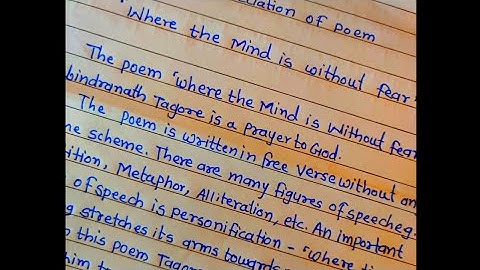 of Poem
Where the Mind is without fear"
The poem "Where the Mind is Without fear
bindranath Tagore is a prayer to God.
The Poem is written in free Verse without an
me scheme. There are many figures of speech eg.
ition, Metaphor, Alliteration, etc. An important
of speech is personification - "Where ti
g stretches its arms towards
this poem Tagor
him t